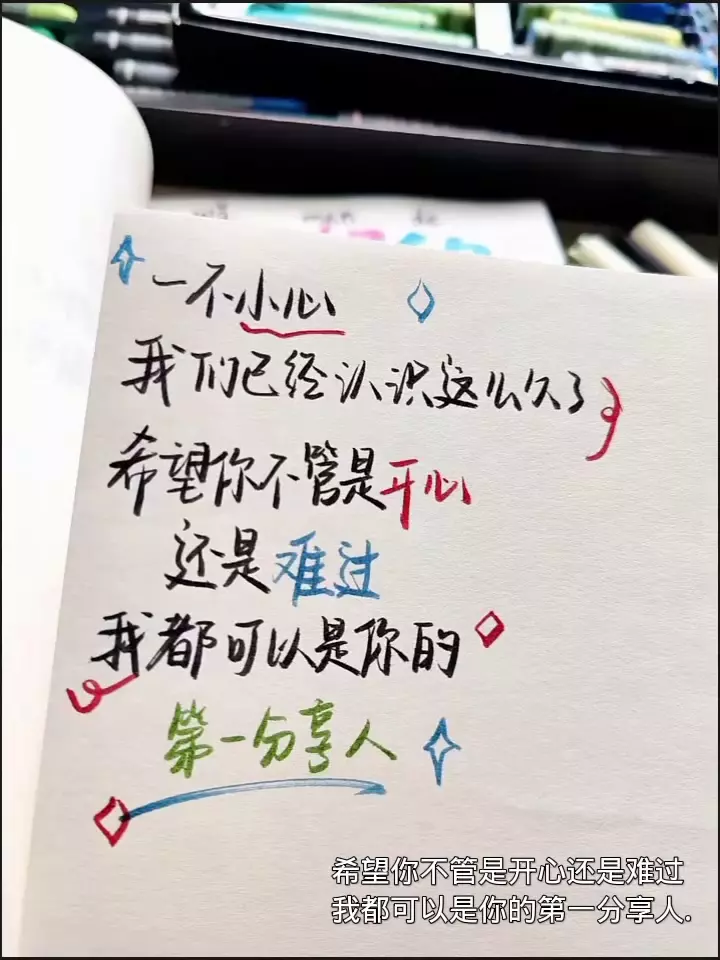 一不小心
我们已经认识这么久了
希望你不管是开心
还是难过
我都可以是你的
第一分享人
希望你不管是开心还是难过
我都可以是你的第一分享人.